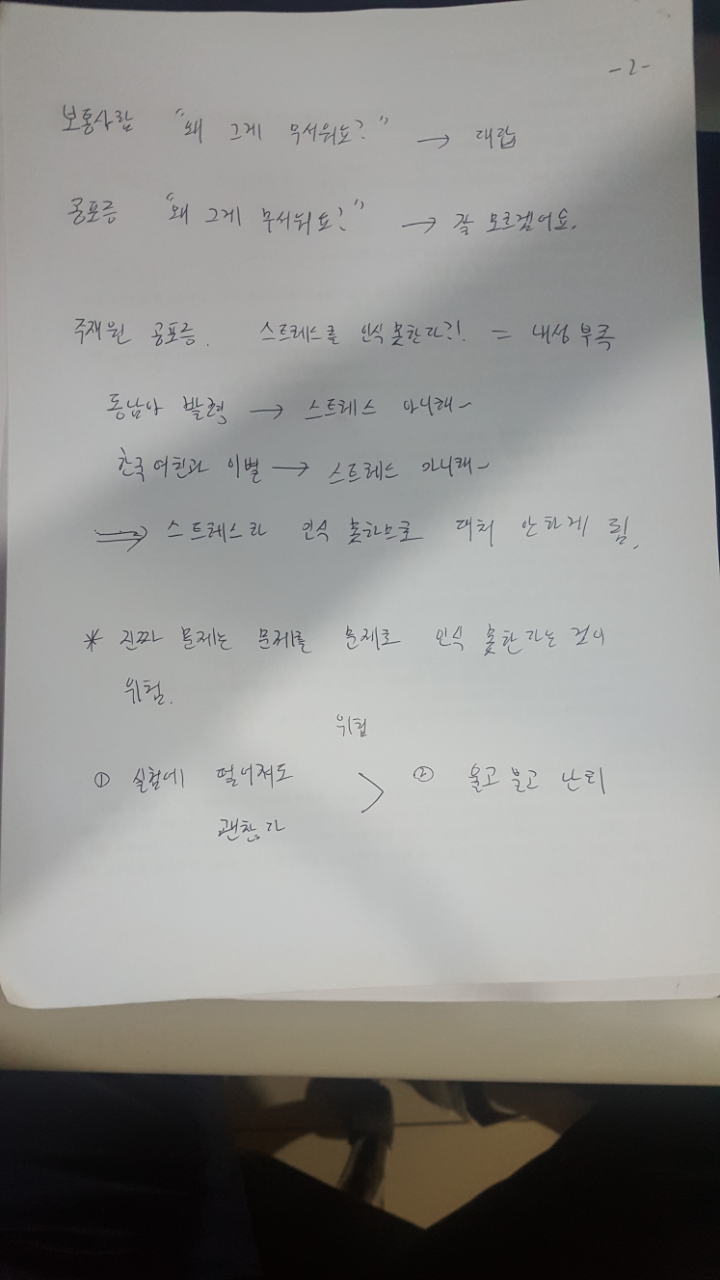 -2-
보통사람 "왜 그게 무서워요?" → 대답
공포증 "왜 그게 무서워요?" → 잘 모르겠어요.
주재원 공포증. 스트레스를 인식 못한다?! = 내성 부족
동남아 발령 → 스트레스 아니래~
한국 여친과 이별 → 스트레스 아니래~
⇒ 스트레스라 인식 못하므로 대처 안하게 됨.
* 진짜 문제는 문제를 문제로 인식 못한다는 것이
위험.
위험
① 실험에 떨어져도 > ② 울고불고 난리
괜찮다